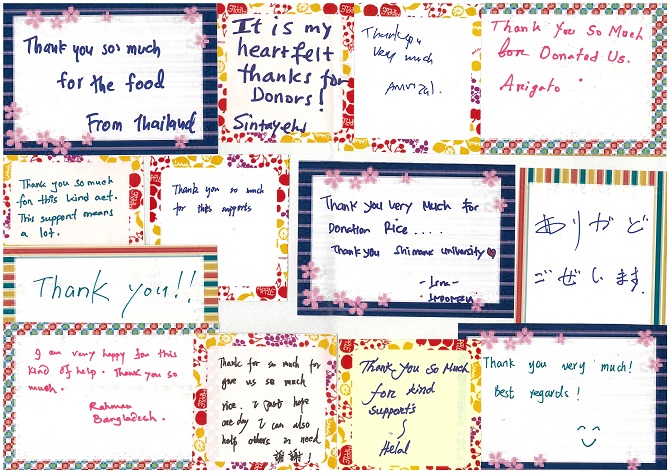 Thank you so much
for the food
From Thailand
It is my
heartfelt
thanks for
Donors!
Sintayehu
Thank you
very much
Thank You So Much
for Donated Us.
Arigato
Thank you so much
for this kind act.
This support means
a lot.
Thank you so much
for this supports
Thank you Very Much for
Donation Rice ....
Thank you Shimane university
INDONESIA
ありがと
ござします.
Thank you!!
I am very happy for this
kind of help. Thank you so
much.
Rahman
Bangladesh.
Thank for so much for
gave us so much
rice. I just hope
one day I can also
help others in need
謝謝!
Thank You So Much
for kind
supports
Helal
Thank you very much!
Best regards!